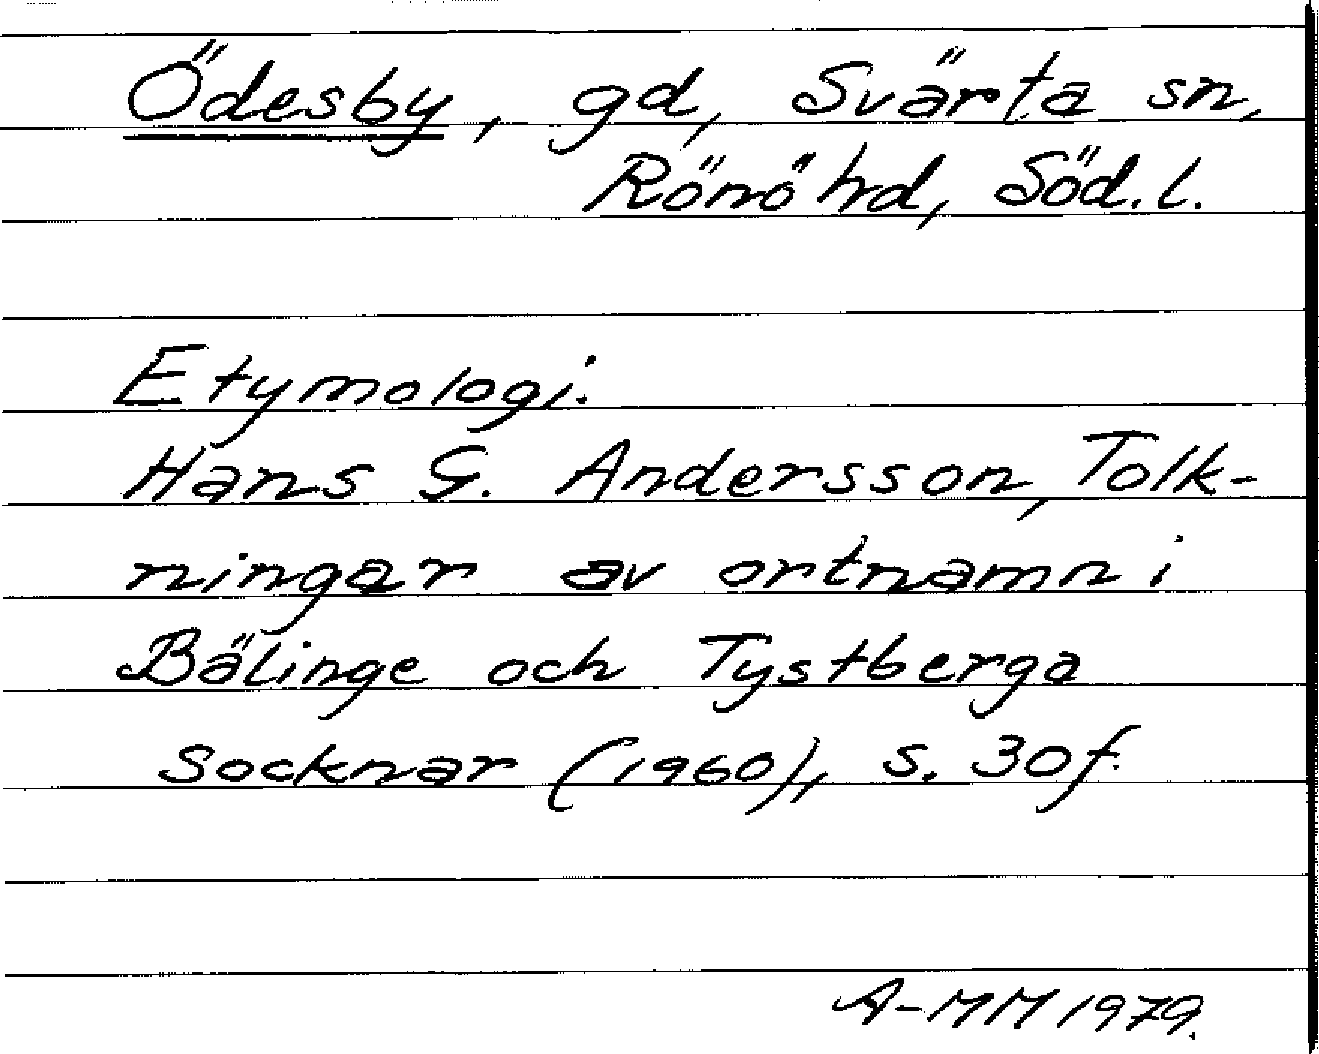 Ödesby, gd, Svärta sn,
Rönö hd, Söd.l.
Etymologi.
Hans G. Andersson, Tolk-
ningar av ortnamn i
Bälinge och Tystberga
socknar (1960), s. 30f.
A-MM 1979.